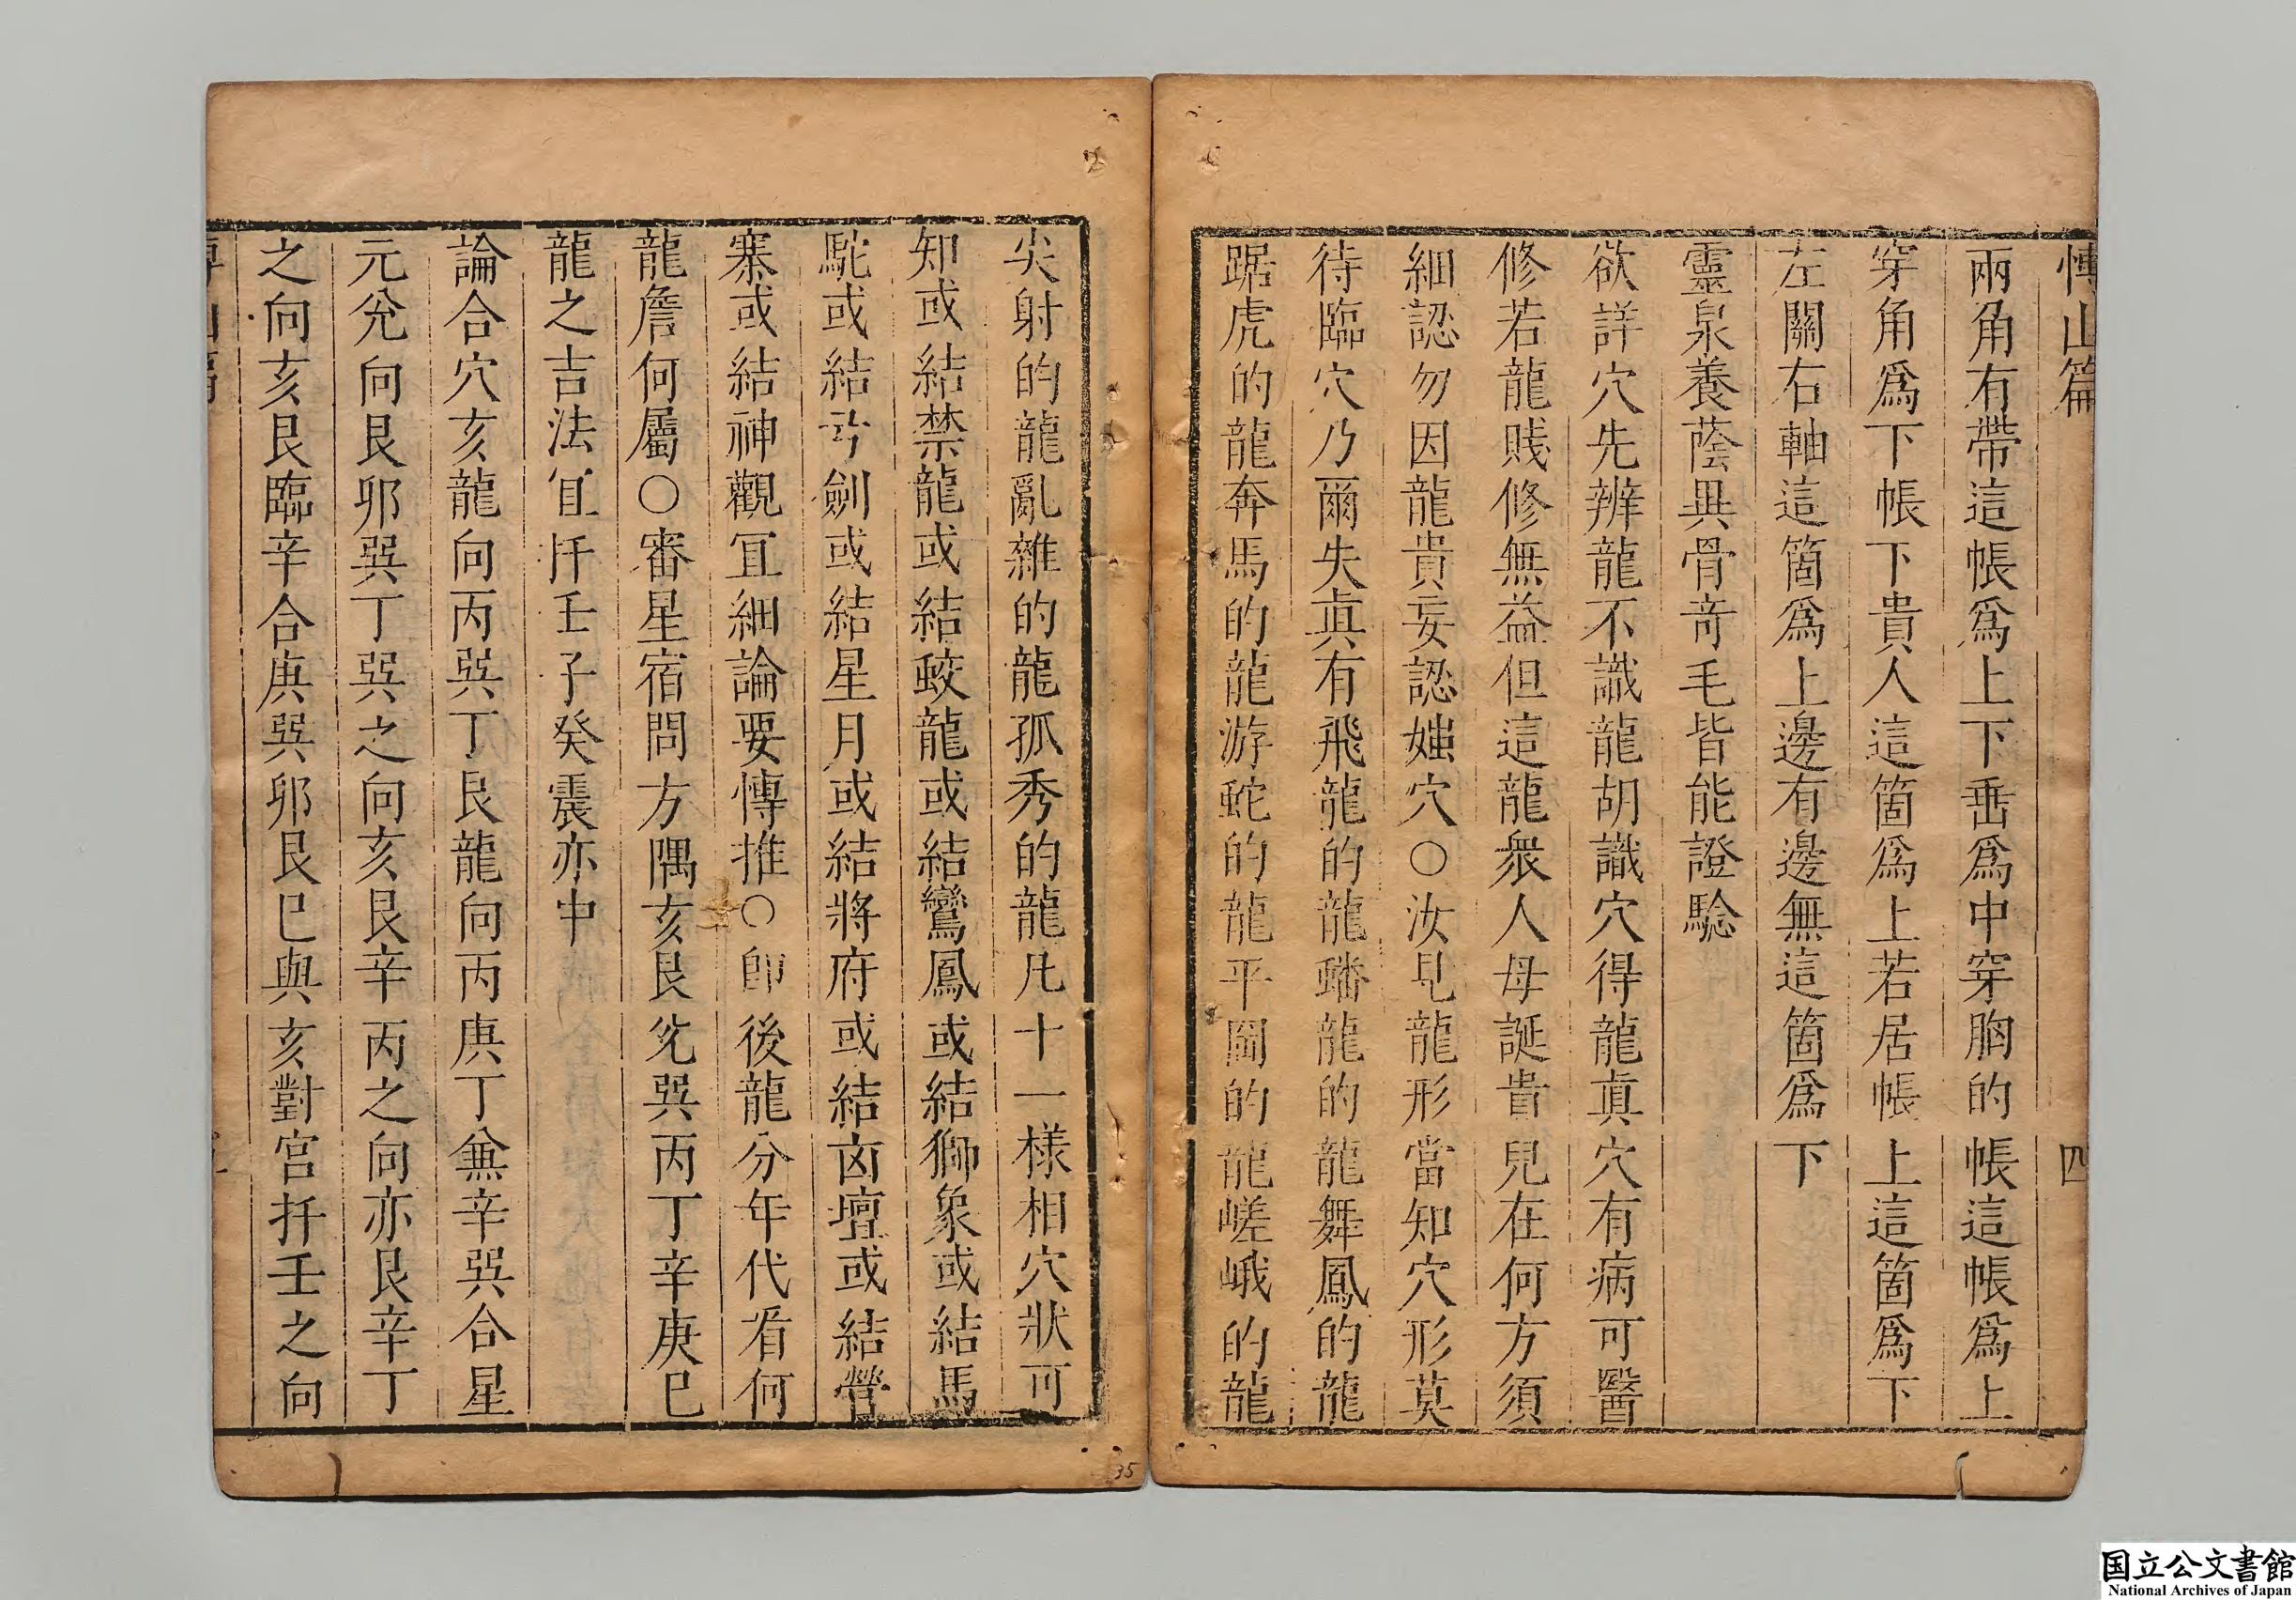 愽山篇 四
兩角有帶這帳爲上下垂爲中穿胸的帳這帳爲上
穿角爲下帳下貴人這箇爲上若居帳上這箇爲下
左關右軸這箇爲上邊有邊無這箇爲下
靈泉養蔭異骨竒毛皆能證驗
欲詳穴先辨龍不識龍胡識穴得龍真穴有病可醫
修若龍賤修無益但這龍衆人母誕貴兒在何方須
細認勿因龍貴妄認𡟎穴○汝見龍形當知穴形莫
待臨穴乃爾失真有飛龍的龍蟠龍的龍舞鳳的龍
踞虎的龍奔馬的龍游蛇的龍平岡的龍嵯峨的龍
尖射的龍亂雜的龍孤秀的龍凡十一樣相穴狀可
知或結禁龍或結蛟龍或結鸞鳳或結獅象或結馬
駝或結弓劍或結星月或結將府或結卤壇或結營
寨或結神觀宜細論要愽推○節後龍分年代看何
龍詹何屬○審星宿問方隅亥艮兊巽丙丁辛庚巳
龍之吉法宜扦壬子癸震亦中
論合穴亥龍向丙巽丁艮龍向丙庚丁兼辛巽合星
元兊向艮卯巽丁巽之向亥艮辛丙之向亦艮辛丁
之向亥艮臨辛合庚巽卯艮巳與亥對宫扦壬之向